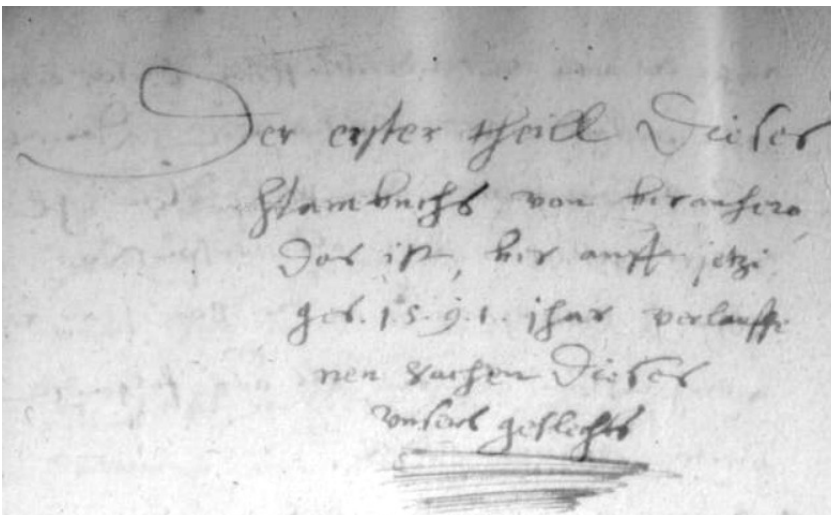 Der erster theill Dieses
stambuchs von bis anhero
Das ist, bis auff jetzi
ges. 1.5.9.1. jhar verlauffe
nen sachen Dieses
unsers geslechts